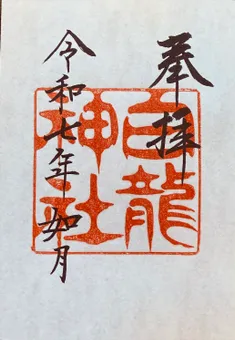 奉拝
白龍神社
令和七年如月